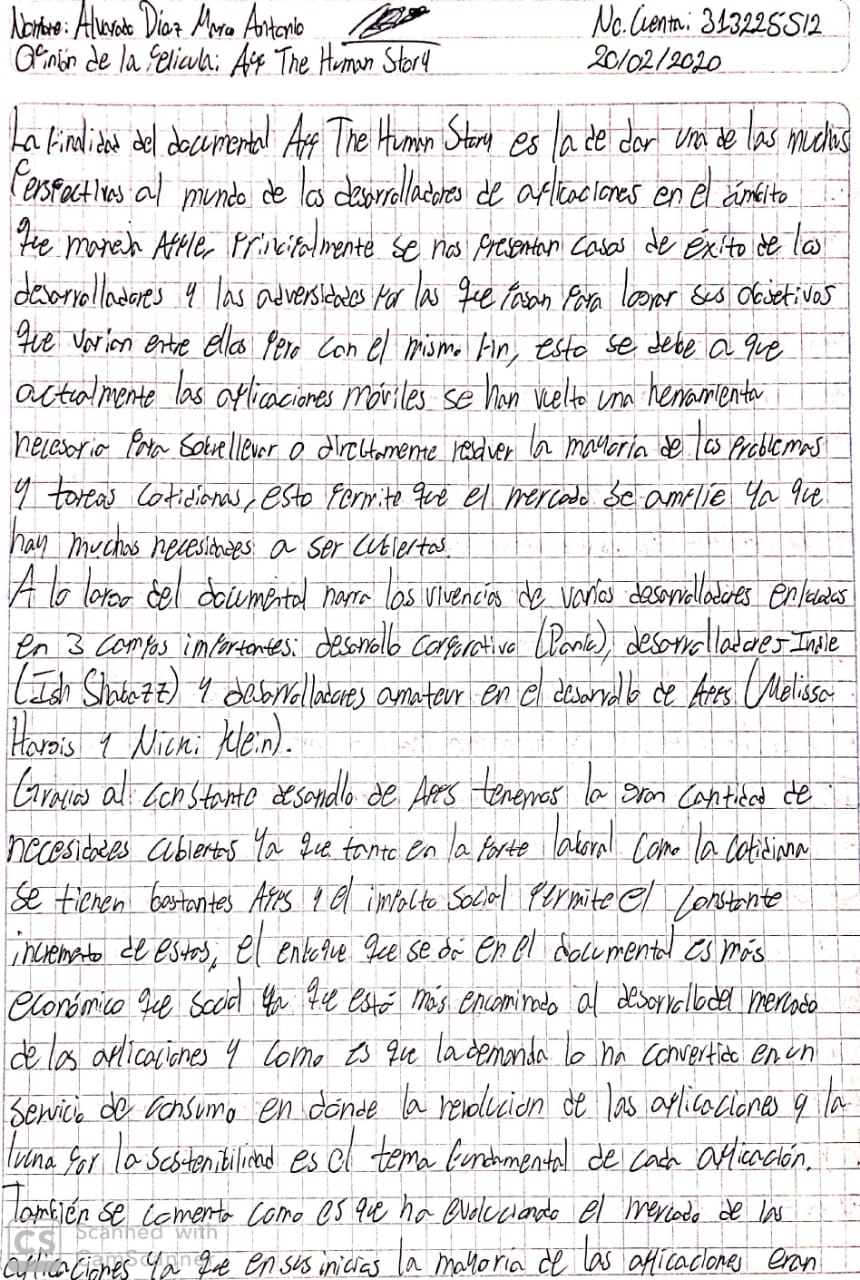 Nombre: Alvarado Díaz Marco Antonio No. Cuenta: 313225512
Opinión de la película: App The Human Story 20/02/2020
La finalidad del documental App The Human Story es la de dar una de las muchas
perspectivas al mundo de los desarrolladores de aplicaciones en el ámbito
que maneja Apple, principalmente se nos presentan casos de éxito de los
desarrolladores y las adversidades por las que pasan para lograr sus objetivos
que varian entre ellos pero con el mismo fin, esto se debe a que
actualmente las aplicaciones móviles se han vuelto una herramienta
necesaria para sobrellevar o directamente resolver la mayoría de los problemas
y tareas cotidianas, esto permite que el mercado se amplíe ya que
hay muchas necesidades a ser cubiertas.
A lo largo del documental narra las vivencias de varios desarrolladores
en 3 campos importantes: desarrollo corporativo (Panic), desarrolladores Indie
(Ish Shabazz) y desarrolladores amateur en el desarrollo de Apps (Melissa
Hargis y Nicki Klein).
Gracias al constante desarrollo de Apps tenemos la gran cantidad de
necesidades cubiertas ya que tanto en la parte laboral como la cotidiana
se tienen bastantes Apps y el impacto social permite el constante
incremento de estas, el enfoque que se dá en el documental es más
económico que social ya que está más encaminado al desarrollo del mercado
de las aplicaciones y como es que la demanda lo ha convertido en un
servicio de consumo en dónde la revolución de las aplicaciones y la
lucha por la sostenibilidad es el tema fundamental de cada aplicación.
También se comenta como es que ha evolucionado el mercado de las
aplicaciones ya que en sus inicios la mayoría de las aplicaciones eran
CS Scanned with
CamScanner